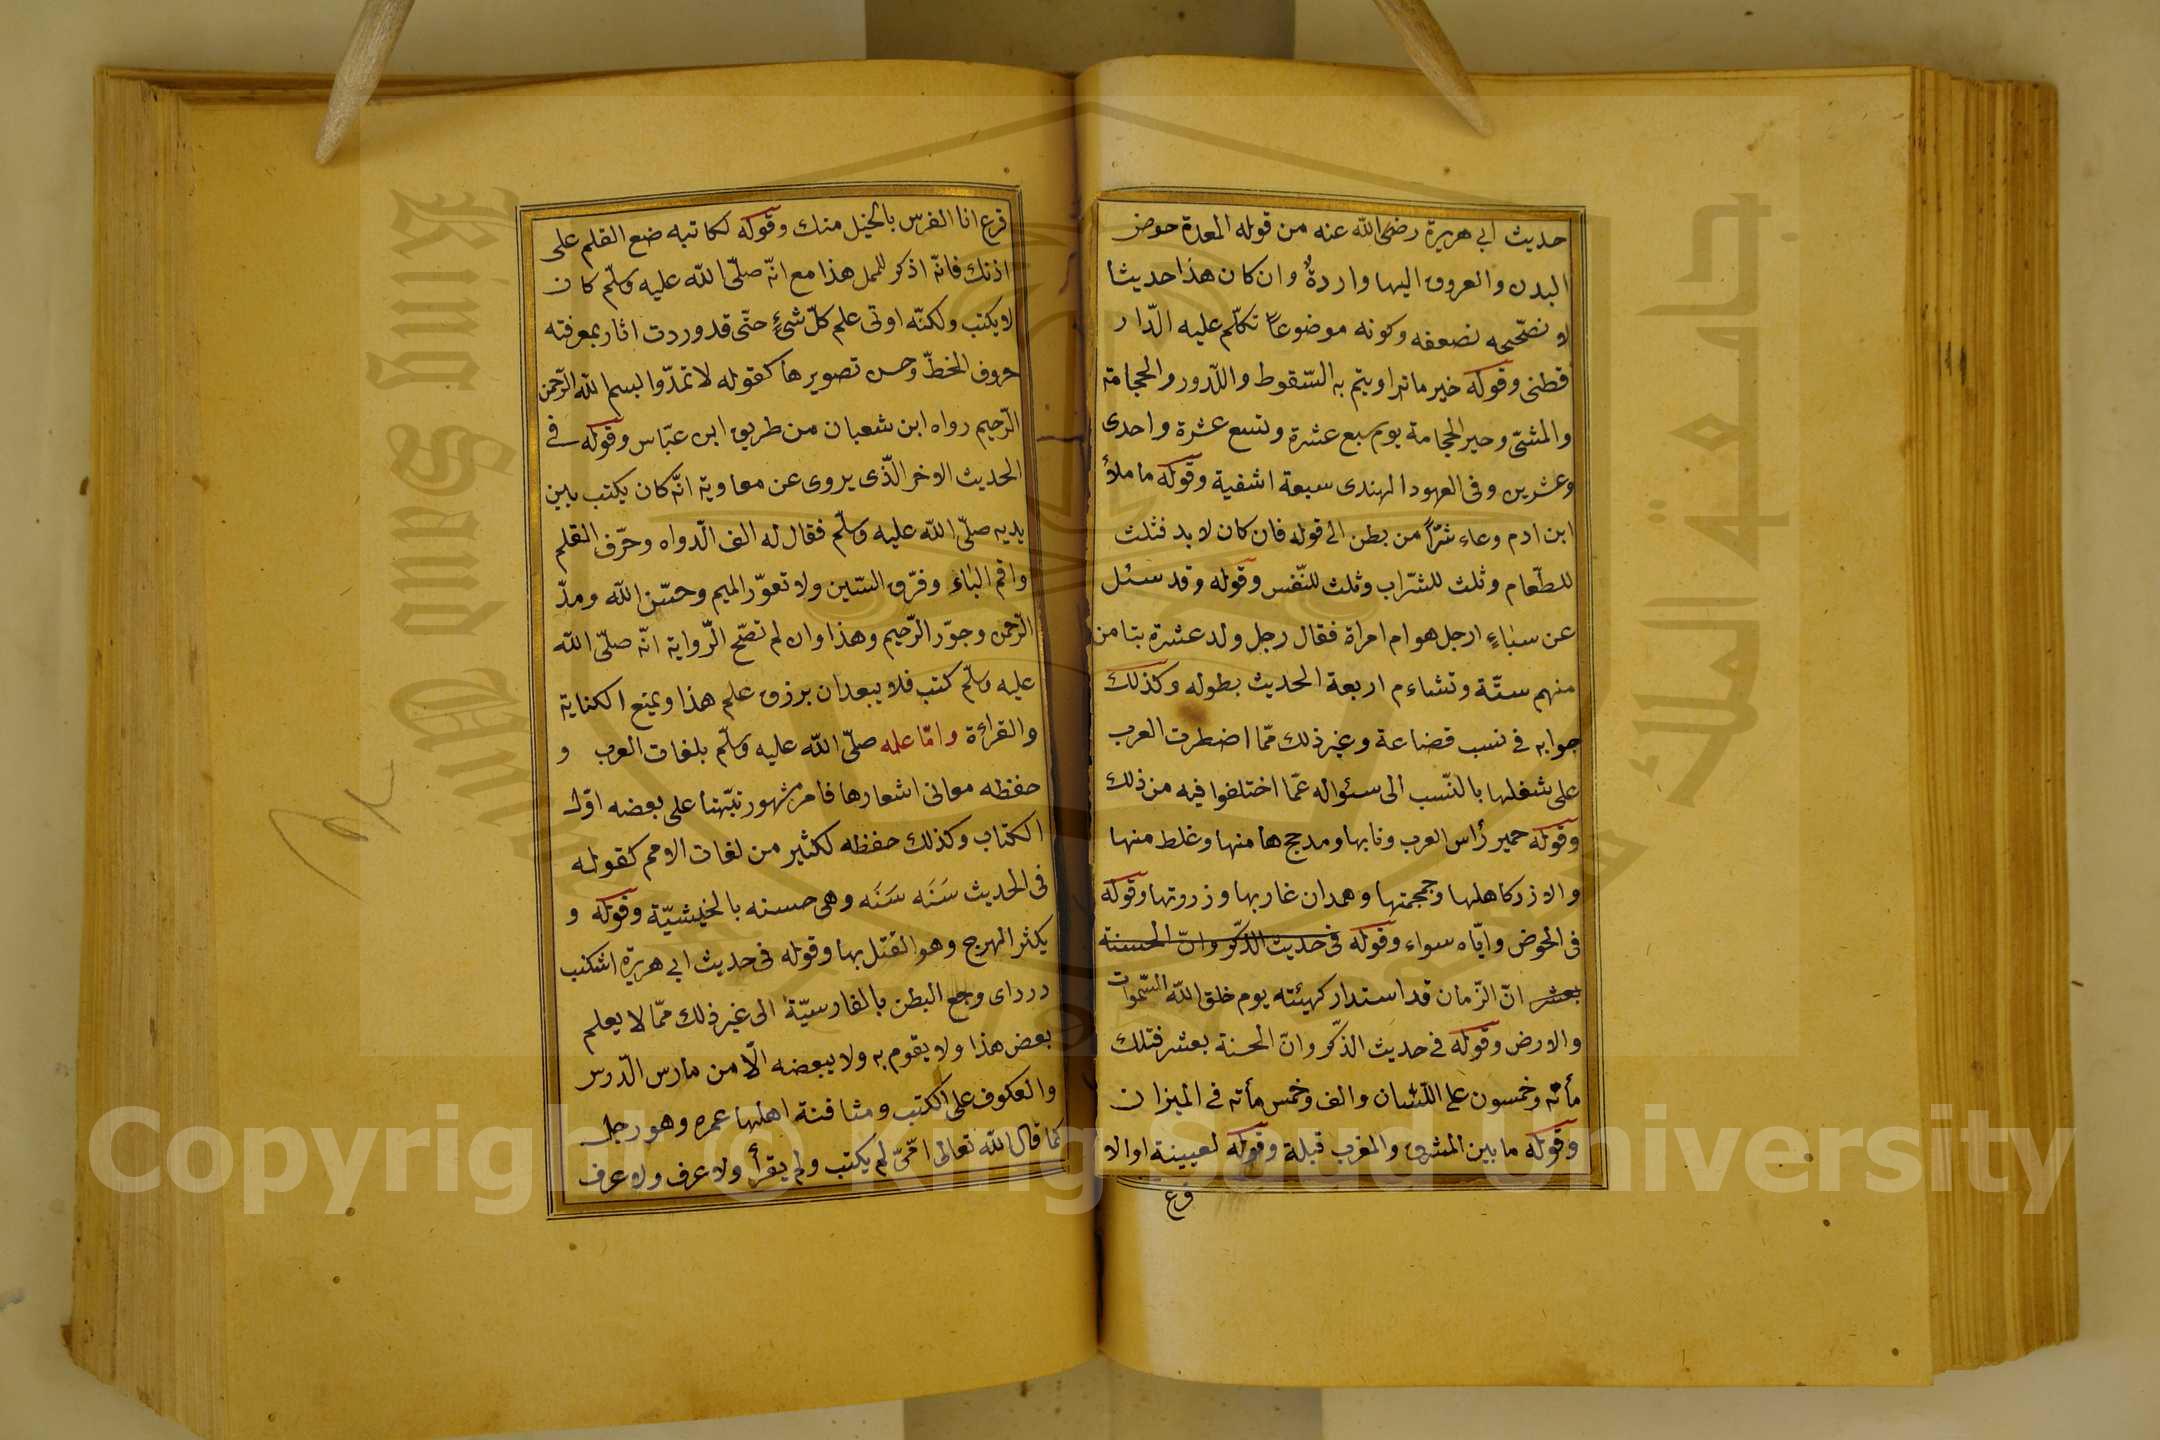 حديث ابي هريرة رضى الله عنه من قوله المعدة حوض
البدن والعروق اليها واردةٌ وان كان هذا حديثا
لا نصّحيحه لضعفه وكونه موضوعاً تكلّم عليه الدّار
قطنى وقوله خير ما تداويتم به السّقوط واللّدود والحجامة
والمشىّ وخير الحجامة يوم سبع عشرة وتسع عشرة واحدى
وعشرين وفى العود الهندى سبعة اشفية وقوله ما ملأ
ابن ادم وعاء شرّاً من بطن الى قوله فان كان لا بد فثلث
للطّعام وثلث للشّراب وثلث للنّفس وقوله وقد سئل
عن سباءٍ ارجل هو ام امراة فقال رجل ولد عشرة تيامن
منهم ستّة وتشاءم اربعة الحديث بطوله وكذلك
جوابه فى نسب قضاعة وغير ذلك ممّا اضطرت العرب
على شغلها بالنّسب الى سئواله عمّا اختلفوا فيه من ذلك
وقوله حمير رأس العرب ونابها ومدحج هامتها وغلصمتها
والازد كاهلها وجمجمتها وهمدان غاربها وذروتها وقوله
فى الحوض وايّاه سواء وقوله فى حديث الذّكر وانّ الحسنة
بعشر انّ الزّمان قد استدار كهيئته يوم خلق الله السّموات
والارض وقوله فى حديث الذّكر وانّ الحسنة بعشر فتلك
مأئة وخمسون على اللّسان والف وخمس مأئة فى الميزان
وقوله ما بين المشرق والمغرب قبلة وقوله لعيينة او الا
قرع
قرع انا افرس بالخيل منك وقوله لكاتبه ضع القلم على
اذنك فانّه اذكر للممل هذا مع انّه صلّى الله عليه وسلّم كان
لا يكتب ولكنّه اوتى علم كلّ شئٍ حتّى قد وردت اثار بمعرفته
حروف الخطّ وحسن تصويرها كقوله لا تمدّوا بسم الله الرّحمن
الرّحيم رواه ابن شعبان من طريق ابن عبّاس وقوله فى
الحديث الاخر الّذى يروى عن معاوية انّه كان يكتب بين
يديه صلّى الله عليه وسلّم فقال له الق الدّواه وحرّف القلم
واقم الباء وفرّق السّين ولا تعوّر الميم وحسّن الله ومدّ
الرّحمن وجوّد الرّحيم وهذا وان لم تصّح الرّواية انّه صلّى الله
عليه وسلّم كتب فلا يبعد ان يرزق علم هذا ويمنع الكتابة
والقراءة وامّا علمه صلّى الله عليه وسلّم بلغات العرب و
حفظه معانى اشعارها فامر مشهور نبّهنا على بعضه اوّل
الكتاب وكذلك حفظه لكثير من لغات الامم كقوله
فى الحديث سَنَه سَنَه وهى حسنه بالحبشيّة وقوله و
يكثر الهرج وهو القتل بها وقوله فى حديث ابي هريرة اشكنب
درد اى وجع البطن بالفارسيّة الى غير ذلك ممّا لا يعلم
بعض هذا ولا يقوم به ولا ببعضه الّا من مارس الدّرس
والعكوف على الكتب ومثافنة اهلها عمره وهو رجل
كما قال الله تعالى امّىّ لم يكتب ولم يقرأ ولا عرف ولا عرف
King Saud University
جامعة الملك سعود
Copyright © King Saud University